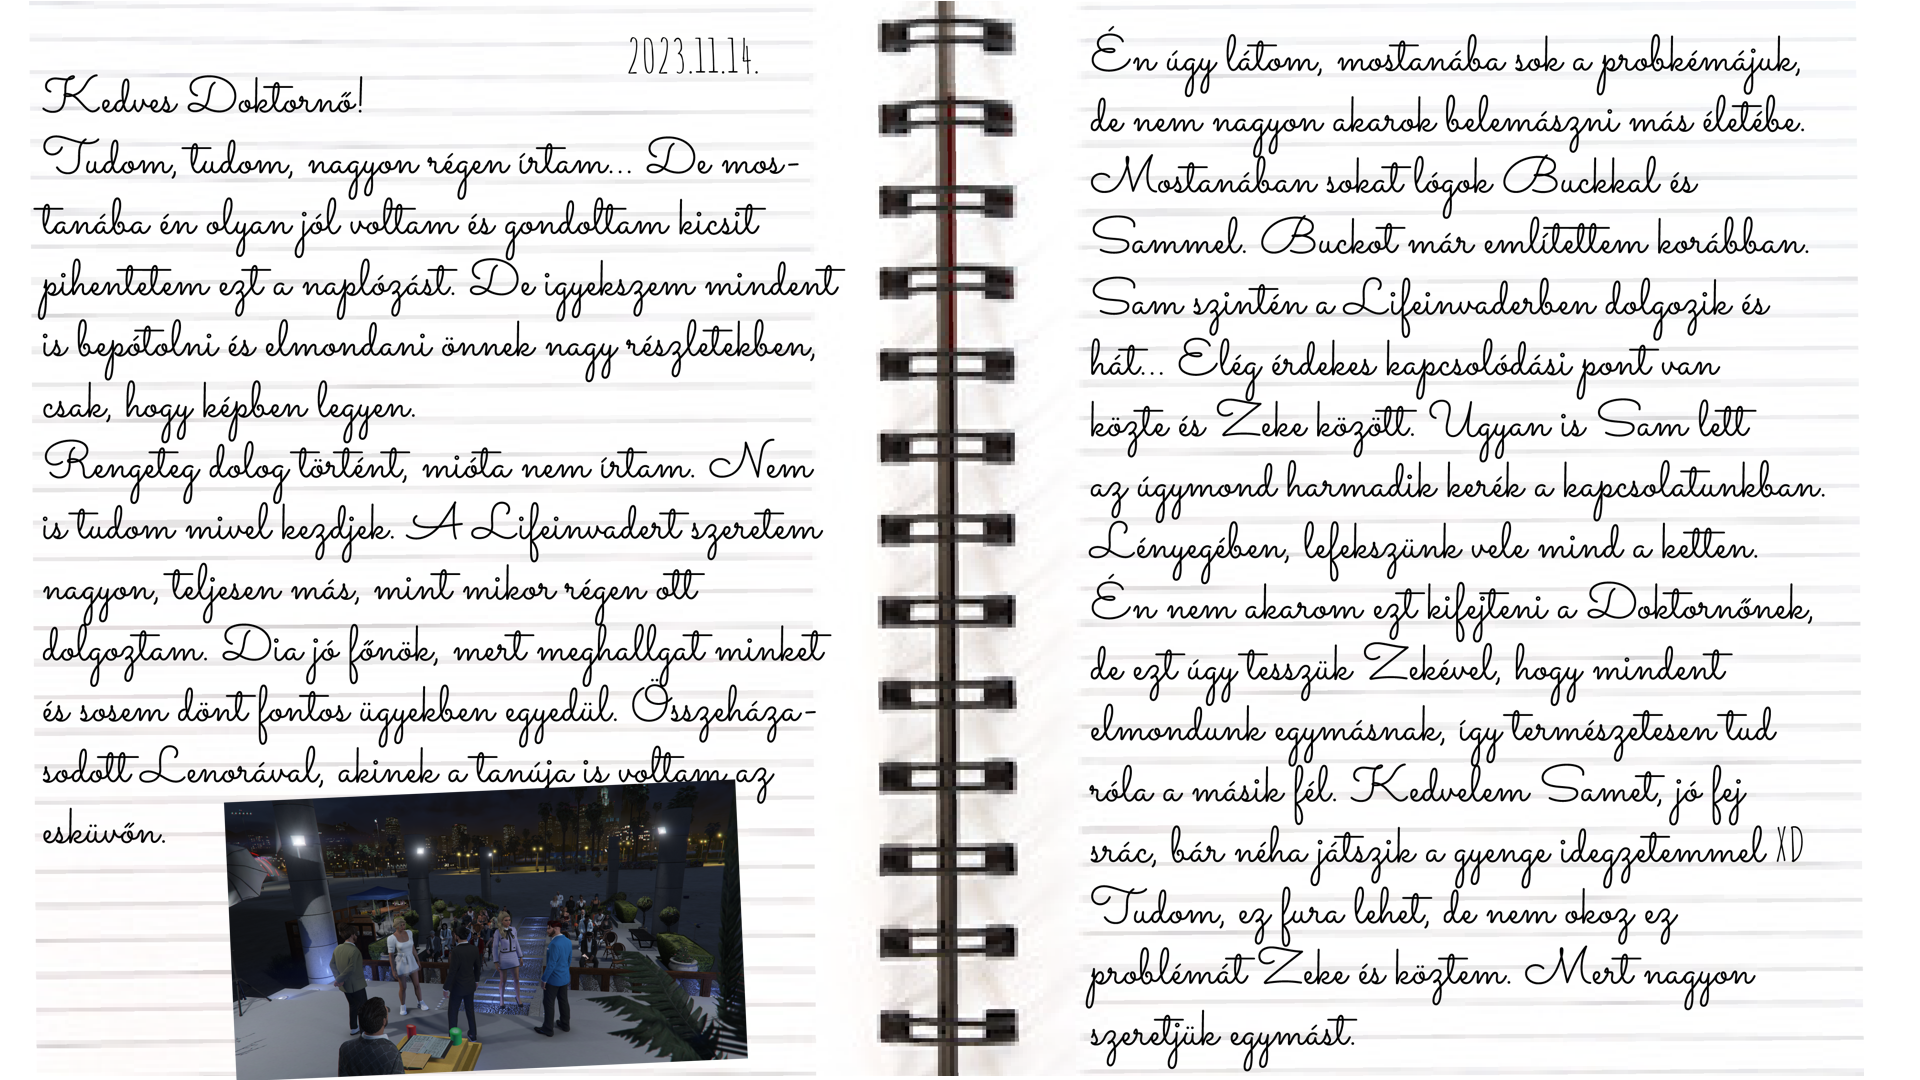 2023.11.14.
Kedves Doktornő!
Tudom, tudom, nagyon régen írtam... De mos-
tanába én olyan jól voltam és gondoltam kicsit
pihentetem ezt a naplózást. De igyekszem mindent
is bepótolni és elmondani önnek nagy részletekben,
csak, hogy képben legyen.
Rengeteg dolog történt, mióta nem írtam. Nem
is tudom mivel kezdjek. A Lifeinvadert szeretem
nagyon, teljesen más, mint mikor régen ott
dolgoztam. Dia jó főnök, mert meghallgat minket
és sosem dönt fontos ügyekben egyedül. Összeháza-
sodott Lenorával, akinek a tanúja is voltam az
esküvőn.
Én úgy látom, mostanába sok a probkémájuk,
de nem nagyon akarok belemászni más életébe.
Mostanában sokat lógok Buckkal és
Sammel. Buckot már említettem korábban.
Sam szintén a Lifeinvaderben dolgozik és
hát... Elég érdekes kapcsolódási pont van
közte és Zeke között. Ugyan is Sam lett
az úgymond harmadik kerék a kapcsolatunkban.
Lényegében, lefekszünk vele mind a ketten.
Én nem akarom ezt kifejteni a Doktornőnek,
de ezt úgy tesszük Zekével, hogy mindent
elmondunk egymásnak, így természetesen tud
róla a másik fél. Kedvelem Samet, jó fej
srác, bár néha játszik a gyenge idegzetemmel XD
Tudom, ez fura lehet, de nem okoz ez
problémát Zeke és köztem. Mert nagyon
szeretjük egymást.